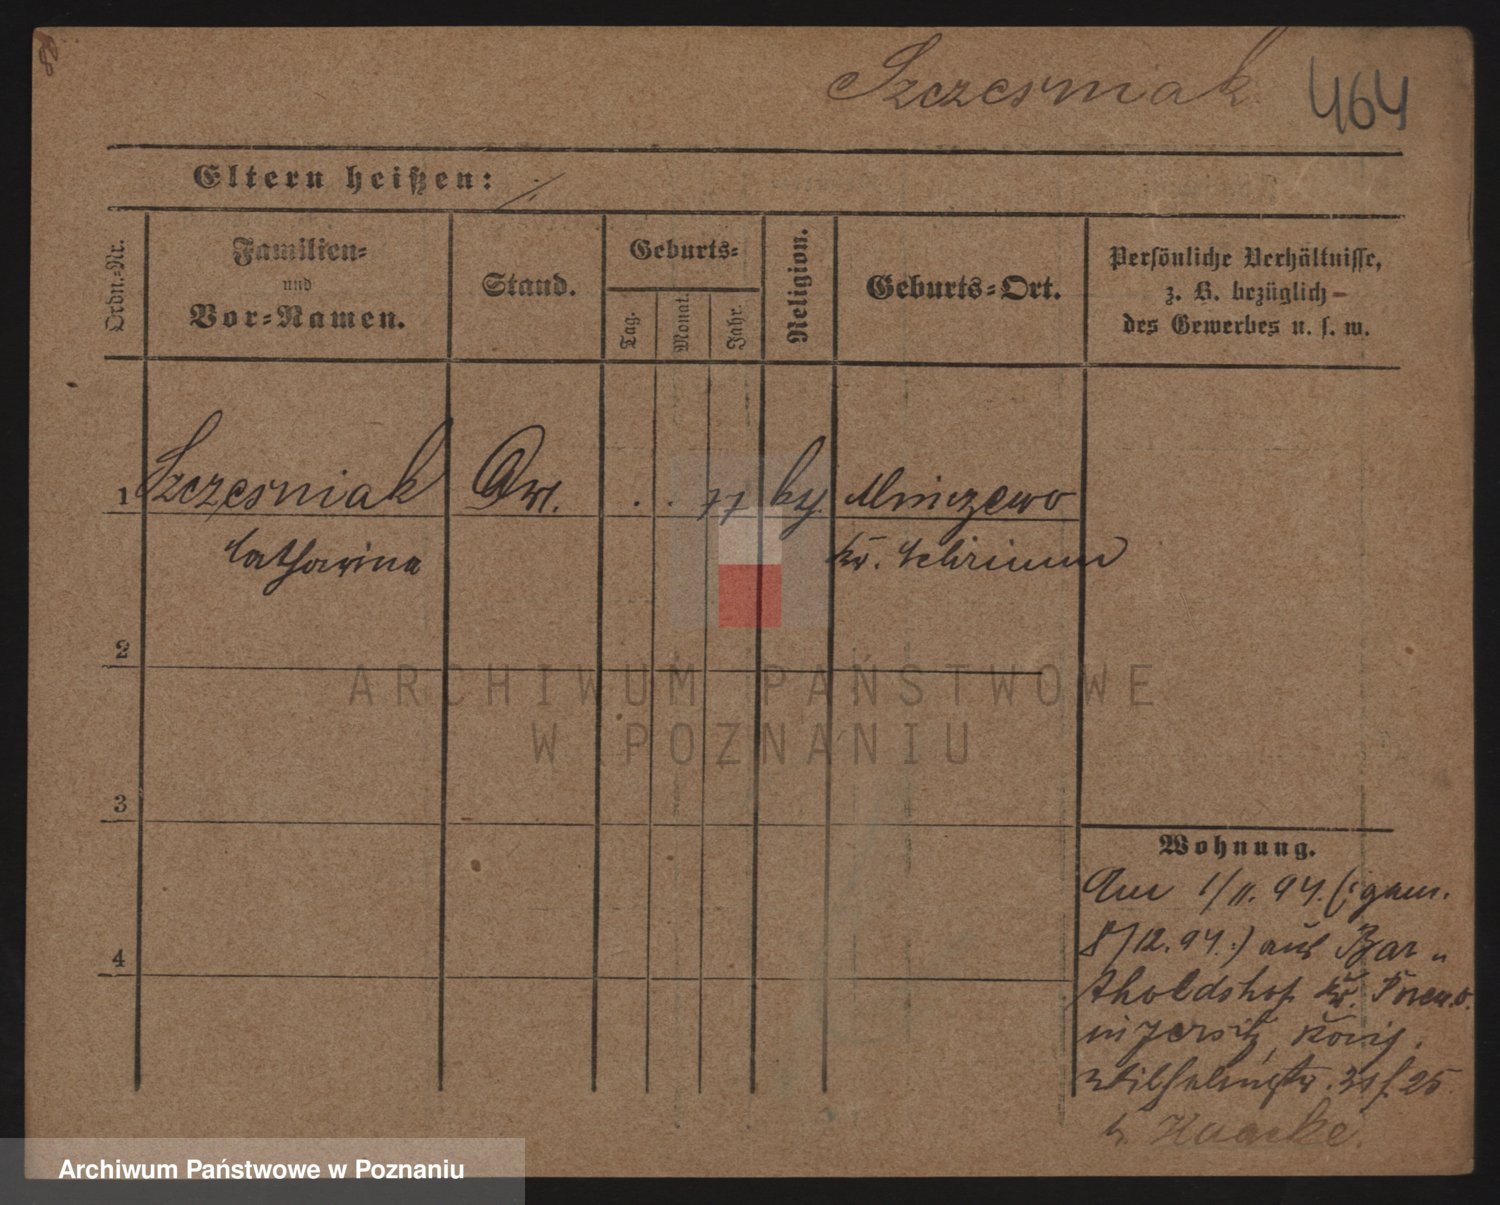 Szczesniak 464
Eltern heißen: ./.
Ordn.-Nr.
Familien-
und
Vor-Namen.
Stand.
Geburts-
Tag.
Monat.
Jahr.
Religion.
Geburts-Ort.
Persönliche Verhältnisse,
z. B. bezüglich
des Gewerbes u. s. w.
1 Szczesniak . . 77 Mniczewo
Catharina Kr. Schrimm
2
ARCHIWUM PAŃSTWOWE
W POZNANIU
3
4
Wohnung.
Am 1/11. 94. (: gem.
8/12. 94 :) aus Bar-
tholdshof Kr. Posen O.
in Jersitz, König.
Wilhelmstr. 25
b. Haacke.
Archiwum Państwowe w Poznaniu